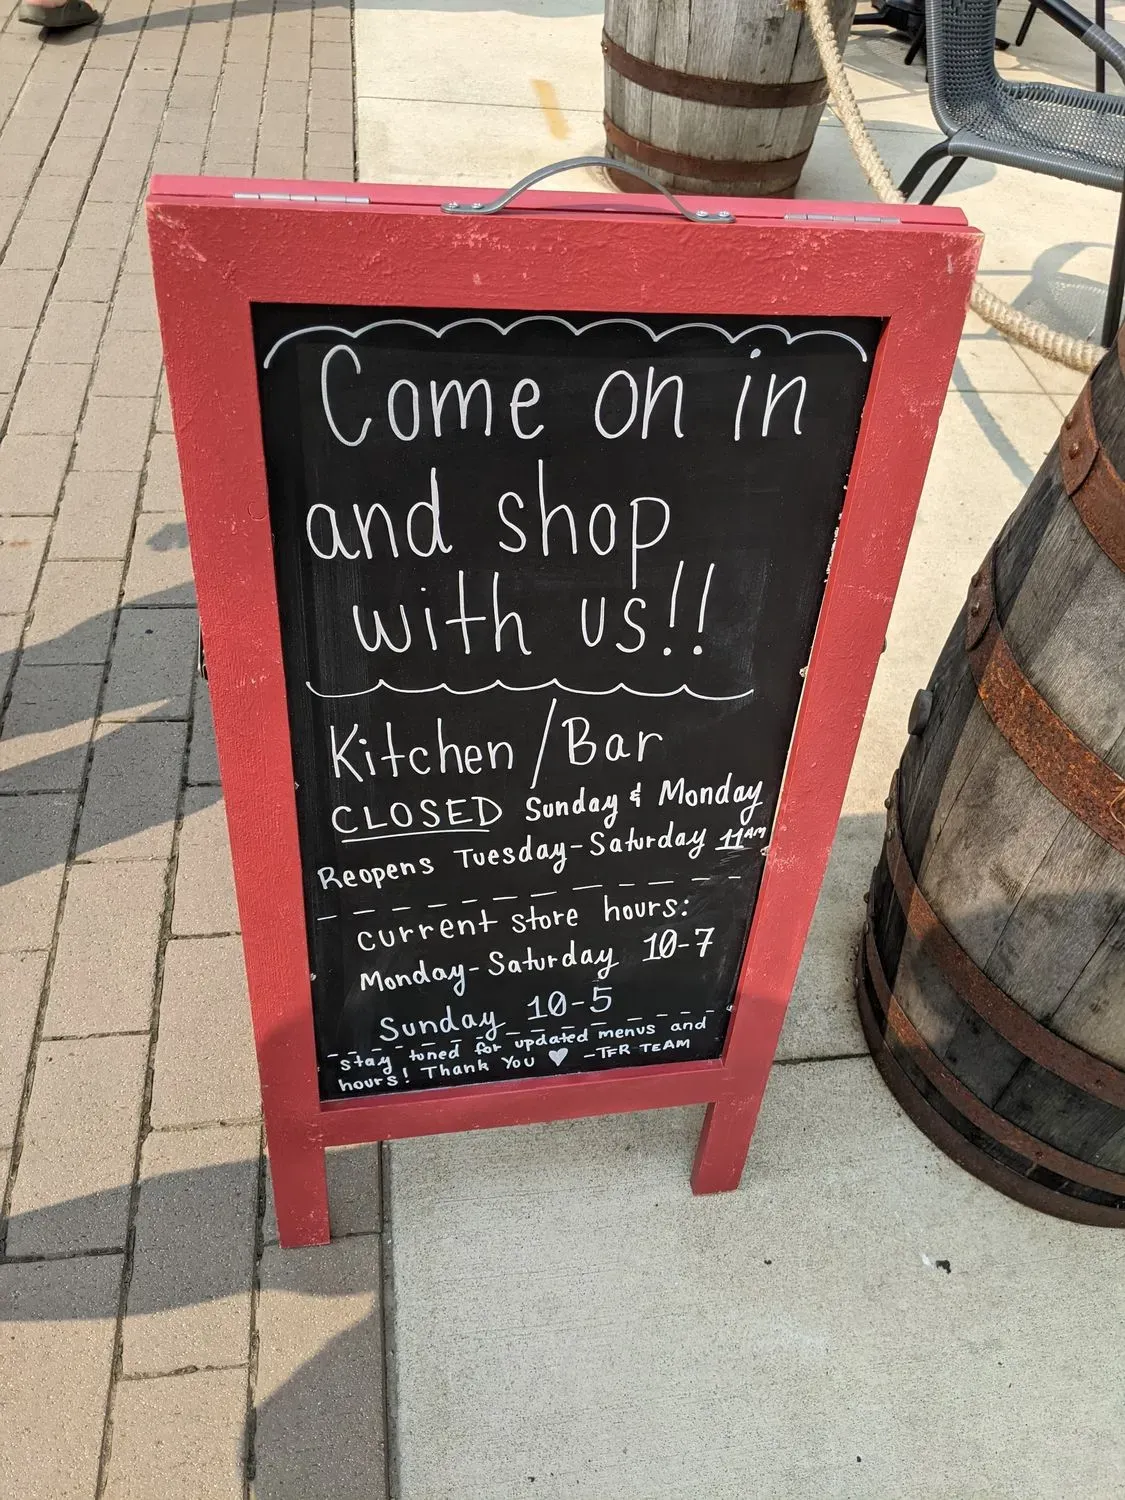 Come on in
and shop
with us!!
Kitchen/Bar
CLOSED Sunday & Monday
Reopens Tuesday-Saturday 11AM
current store hours:
Monday-Saturday 10-7
Sunday 10-5
stay tuned for updated menus and
hours! Thank You ♥ -TFR TEAM